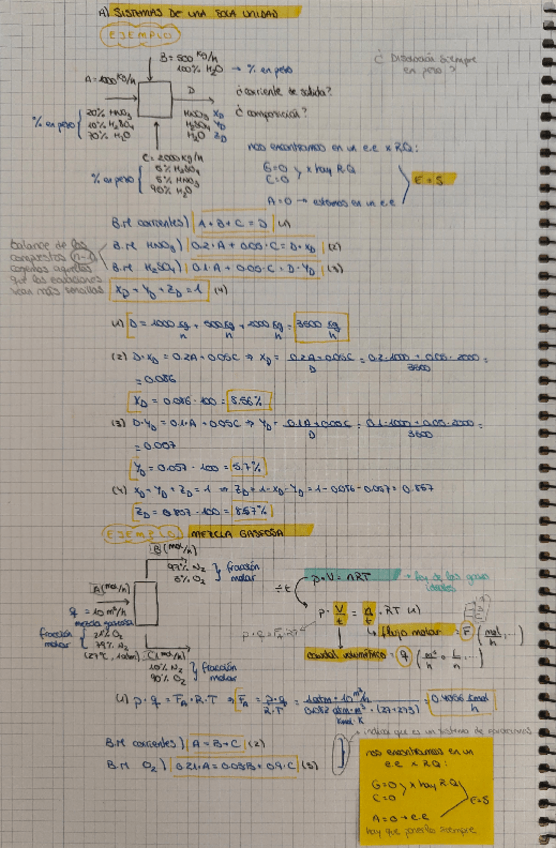 A) SISTEMAS DE UNA SOLA UNIDAD
EJEMPLO
B = 500 kg/h
100% H₂O → % en peso
¿ Disolución siempre
en peso ?
A = 1000 kg/h
D
¿ corriente de salida?
¿ composición?
% en peso
20% HNO₃
10% H₂SO₄
70% H₂O
HNO₃ X_D
H₂SO₄ Y_D
H₂O Z_D
C = 2000 kg/h
% en peso
5% H₂SO₄
5% HNO₃
90% H₂O
nos encontramos en un e.e x R.Q:
G=0 y x hay R.Q
C=0
A=0 → estamos en un e.e
E=S
B.M corrientes) A + B + C = D (1)
balance de los
compuestos (n-1)
cogemos aquellos
que las ecuaciones
sean más sencillas
B.M HNO₃) 0.2·A + 0.05·C = D·X_D (2)
B.M H₂SO₄) 0.1·A + 0.05·C = D·Y_D (3)
X_D + Y_D + Z_D = 1 (4)
(1) D = 1000 kg/h + 500 kg/h + 2000 kg/h = 3500 kg/h
(2) D·X_D = 0.2A + 0.05C ⇒ X_D = (0.2A + 0.05C)/D = (0.2·1000 + 0.05·2000)/3500 =
= 0.086
X_D = 0.086·100 = 8.56%
(3) D·Y_D = 0.1A + 0.05C ⇒ Y_D = (0.1A + 0.05C)/D = (0.1·1000 + 0.05·2000)/3500 =
= 0.057
Y_D = 0.057·100 = 5.7%
(4) X_D + Y_D + Z_D = 1 ⇒ Z_D = 1 - X_D - Y_D = 1 - 0.086 - 0.057 = 0.857
Z_D = 0.857·100 = 85.7%
EJEMPLO. MEZCLA GASEOSA
B (mol/h)
97% N₂
5% O₂
fracción
molar
A (mol/h)
q = 10 m³/h
mezcla gaseosa
fracción
molar
21% O₂
79% N₂
(27ºC, 1atm)
C (mol/h)
10% N₂
90% O₂
fracción
molar
p·V = nRT → ley de los gases
ideales
÷t
p · V/t = n/t · RT (1)
flujo molar = F (mol/h, ...)
caudal volumétrico = q (m³/h, L/h, ...)
(1) p·q = F_A·R·T ⇒ F_A = p·q/R·T = 1atm·10 m³/h / 0.082 atm·m³/kmol·K · (27+273) = 0.4065 kmol/h
B.M corrientes) A = B + C (2)
B.M O₂) 0.21·A = 0.03B + 0.9·C (3)
indica que es un sistema de ecuaciones
nos encontramos en un
e.e x R.Q:
G=0 y x hay R.Q
C=0
A=0 → e.e
E=S
hay que ponerlo siempre